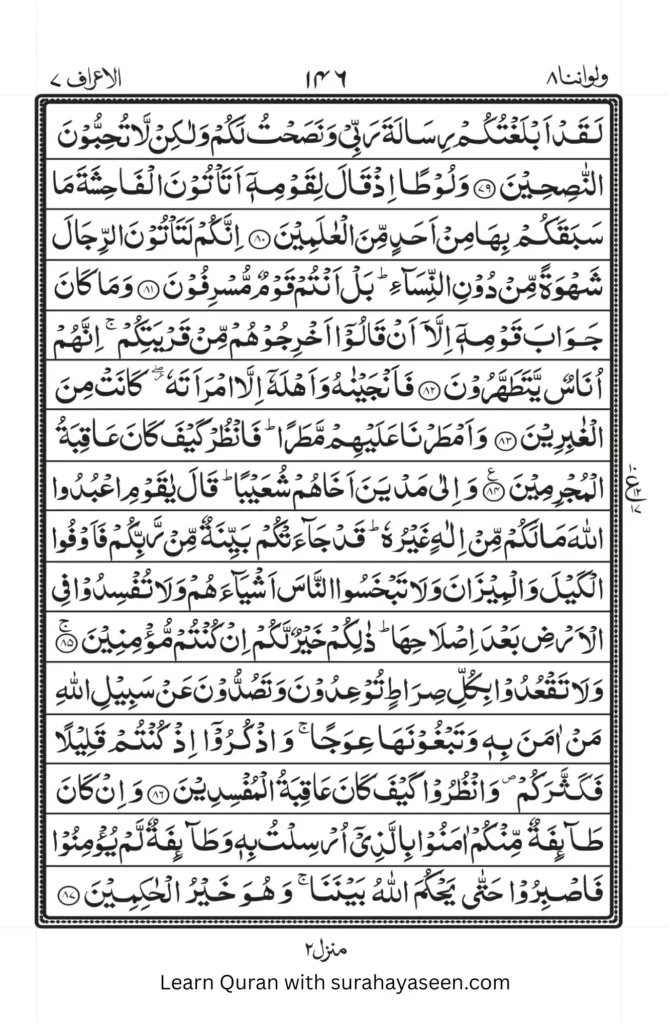 ولواننا٨ ١٤٦ الاعراف ٧
لَقَدْ اَبْلَغْتُكُمْ رِسَالَةَ رَبِّيْ وَنَصَحْتُ لَكُمْ وَلٰكِنْ لَّا تُحِبُّوْنَ
النّٰصِحِيْنَ ﴿٧٩﴾ وَلُوْطًا اِذْ قَالَ لِقَوْمِهٖۤ اَتَاْتُوْنَ الْفَاحِشَةَ مَا
سَبَقَكُمْ بِهَا مِنْ اَحَدٍ مِّنَ الْعٰلَمِيْنَ ﴿٨٠﴾ اِنَّكُمْ لَتَاْتُوْنَ الرِّجَالَ
شَهْوَةً مِّنْ دُوْنِ النِّسَآءِ ؕ بَلْ اَنْتُمْ قَوْمٌ مُّسْرِفُوْنَ ﴿٨١﴾ وَمَا كَانَ
جَوَابَ قَوْمِهٖۤ اِلَّاۤ اَنْ قَالُوْۤا اَخْرِجُوْهُمْ مِّنْ قَرْيَتِكُمْ ۚ اِنَّهُمْ
اُنَاسٌ يَّتَطَهَّرُوْنَ ﴿٨٢﴾ فَاَنْجَيْنٰهُ وَاَهْلَهٗۤ اِلَّا امْرَاَتَهٗ ۖ كَانَتْ مِنَ
الْغٰبِرِيْنَ ﴿٨٣﴾ وَاَمْطَرْنَا عَلَيْهِمْ مَّطَرًا ؕ فَانْظُرْ كَيْفَ كَانَ عَاقِبَةُ
الْمُجْرِمِيْنَ ﴿٨٤﴾ وَاِلٰى مَدْيَنَ اَخَاهُمْ شُعَيْبًا ؕ قَالَ يٰقَوْمِ اعْبُدُوا
اللّٰهَ مَا لَكُمْ مِّنْ اِلٰهٍ غَيْرُهٗ ؕ قَدْ جَآءَتْكُمْ بَيِّنَةٌ مِّنْ رَّبِّكُمْ فَاَوْفُوا
الْكَيْلَ وَالْمِيْزَانَ وَلَا تَبْخَسُوا النَّاسَ اَشْيَآءَهُمْ وَلَا تُفْسِدُوْا فِي
الْاَرْضِ بَعْدَ اِصْلَاحِهَا ؕ ذٰلِكُمْ خَيْرٌ لَّكُمْ اِنْ كُنْتُمْ مُّؤْمِنِيْنَ ۚ﴿٨٥﴾
وَلَا تَقْعُدُوْا بِكُلِّ صِرَاطٍ تُوْعِدُوْنَ وَتَصُدُّوْنَ عَنْ سَبِيْلِ اللّٰهِ
مَنْ اٰمَنَ بِهٖ وَتَبْغُوْنَهَا عِوَجًا ۚ وَاذْكُرُوْۤا اِذْ كُنْتُمْ قَلِيْلًا
فَكَثَّرَكُمْ ۪ وَانْظُرُوْا كَيْفَ كَانَ عَاقِبَةُ الْمُفْسِدِيْنَ ﴿٨٦﴾ وَاِنْ كَانَ
طَآئِفَةٌ مِّنْكُمْ اٰمَنُوْا بِالَّذِيْۤ اُرْسِلْتُ بِهٖ وَطَآئِفَةٌ لَّمْ يُؤْمِنُوْا
فَاصْبِرُوْا حَتّٰى يَحْكُمَ اللّٰهُ بَيْنَنَا ۚ وَهُوَ خَيْرُ الْحٰكِمِيْنَ ﴿٨٧﴾
منزل٢
Learn Quran with surahayaseen.com